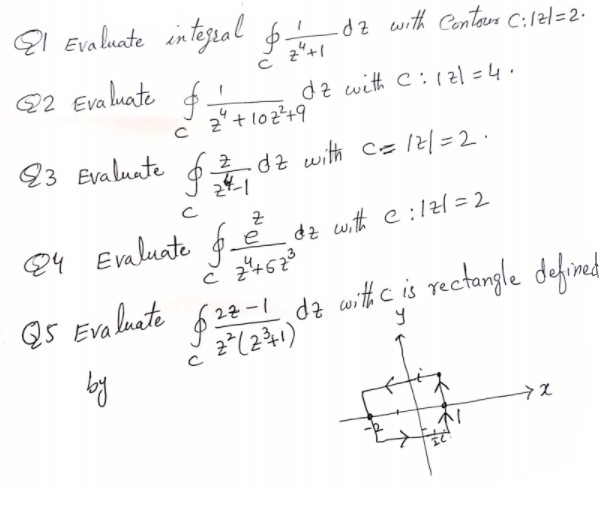 Q1 Evaluate integral ∮_C 1/(z⁴+1) dz with Contour C: |z|=2.
Q2 Evaluate ∮_C 1/(z⁴+10z²+9) dz with C: |z|=4.
Q3 Evaluate ∮_C z/(z⁴-1) dz with C= |z|=2.
Q4 Evaluate ∮_C e^z/(z⁴+5z³) dz with C: |z|=2
Q5 Evaluate ∮_C (2z-1)/(z²(z³+1)) dz with C is rectangle defined
by
y
i
x
-2
1